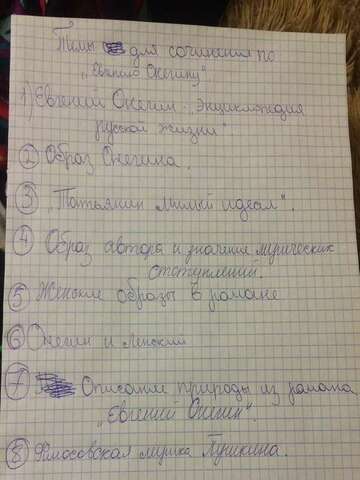 Темы для сочинения по
„Евгению Онегину"
1) Евгений Онегин - „энциклопедия
русской жизни"
2 Образ Онегина.
3 „Татьянин милый идеал".
4 Образ автора и значение лирических
отступлений.
5 Женские образы в романе
6 Онегин и Ленский
7 Описание природы из романа
„Евгений Онегин".
8 Философская лирика Пушкина.